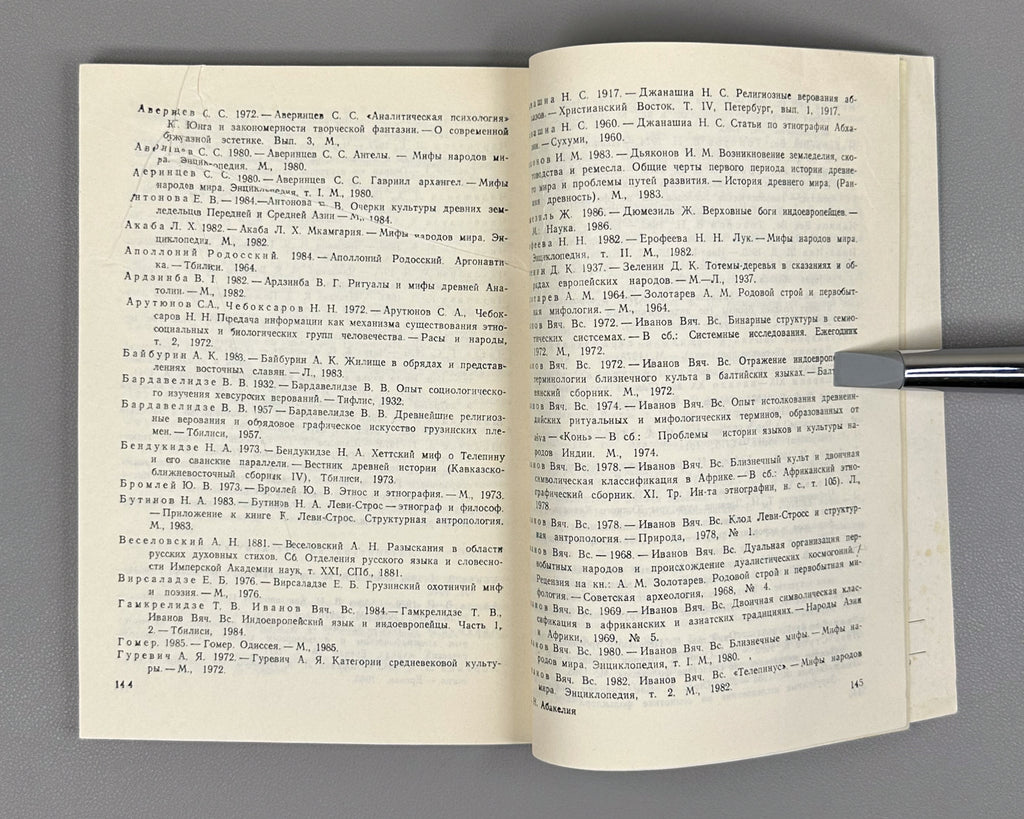 Аверинцев С. С. 1972. — Аверинцев С. С. «Аналитическая психология»
К. Юнга и закономерности творческой фантазии. — О современной
буржуазной эстетике. Вып. 3, М.,
Аверинцев С. С. 1980. — Аверинцев С. С. Ангелы. — Мифы народов ми-
ра. Энциклопедия. М., 1980.
Аеринцев С. С. 1980. — Аверинцев С. С. Гавриил архангел. — Мифы
народов мира. Энциклопедия, т. I. М., 1980.
Антонова Е. В. — 1984. — Антонова Е. В. Очерки культуры древних зем-
ледельцев Передней и Средней Азии — М., 1984.
Акаба Л. Х. 1982. — Акаба Л. Х. Мкамгария. — Мифы народов мира. Эн-
циклопедия. М., 1982.
Аполлоний Родосский. 1984. — Аполлоний Родосский. Аргонавти-
ка. — Тбилиси. 1964.
Ардзинба В. Г 1982. — Ардзинба В. Г. Ритуалы и мифы древней Ана-
толии. — М., 1982.
Арутюнов С.А., Чебоксаров Н. Н. 1972. — Арутюнов С. А., Чебок-
саров Н. Н. Передача информации как механизма существования этно-
социальных и биологических групп человечества. — Расы и народы,
т. 2, 1972.
Байбурин А. К. 1983. — Байбурин А. К. Жилище в обрядах и представ-
лениях восточных славян. — Л., 1983.
Бардавелидзе В. В. 1932. — Бардавелидзе В. В. Опыт социологическо-
го изучения хевсурских верований. — Тифлис, 1932:
Бардавелидзе В. В. 1957 — Бардавелидзе В. В. Древнейшие религиоз-
ные верования и обрядовое графическое искусство грузинских пле-
мен. — Тбилиси, 1957.
Бендукидзе Н. А. 1973. — Бендукидзе Н. А. Хеттский миф о Телепину
и его сванские параллели. — Вестник древней истории (Кавказско-
ближневосточный сборник IV), Тбилиси, 1973.
Бромлей Ю. В. 1973. — Бромлей Ю. В. Этнос и этнография. — М., 1973.
Бутинов Н. А. 1983. — Бутинов Н. А. Леви-Строс — этнограф и философ.
— Приложение к книге К. Леви-Строс. Структурная антропология.
М., 1983.
Веселовский А. Н. 1881. — Веселовский А. Н. Разыскания в области
русских духовных стихов. Сб. Отделения русского языка и словесно-
сти Имперской Академии наук, т. XXI, СПб., 1881.
Вирсаладзе Е. Б. 1976. — Вирсаладзе Е. Б. Грузинский охотничий миф
и поэзия. — М., 1976.
Гамкрелидзе Т. В. Иванов Вяч. Вс. 1984. — Гамкрелидзе Т. В.,
Иванов Вяч. Вс. Индоевропейский язык и индоевропейцы. Часть 1,
2. — Тбилиси, 1984.
Гомер. 1985. — Гомер. Одиссея. — М., 1985.
Гуревич А. Я. 1972. — Гуревич А. Я. Категории средневековой культу-
ры. — М., 1972.
144
ашиа Н. С. 1917. — Джанашиа Н. С. Религиозные верования аб-
хазов. — Христианский Восток. Т. IV, Петербург, вып. 1, 1917.
ашиа Н. С. 1960. — Джанашиа Н. С. Статьи по этнографии Абха-
зии. — Сухуми, 1960.
онов И. М. 1983. — Дьяконов И. М. Возникновение земледелия, ско-
товодства и ремесла. Общие черты первого периода истории древне-
го мира и проблемы путей развития. — История древнего мира. (Ран-
няя древность). М., 1983.
езиль Ж. 1986. — Дюмезиль Ж. Верховные боги индоевропейцев. —
М.: Наука. 1986.
феева Н. Н. 1982. — Ерофеева Н. Н. Лук. — Мифы народов мира.
Энциклопедия, т. II. М., 1982.
нин Д. К. 1937. — Зеленин Д. К. Тотемы-деревья в сказаниях и об-
рядах европейских народов. — М.—Л., 1937.
тарев А. М. 1964. — Золотарев А. М. Родовой строй и первобыт-
ная мифология. — М., 1964.
нов Вяч. Вс. 1972. — Иванов Вяч. Вс. Бинарные структуры в семио-
тических систсемах. — В сб.: Системные исследования. Ежегодник
1972. М., 1972.
нов Вяч. Вс. 1972. — Иванов Вяч. Вс. Отражение индоевропе
терминологии близнечного культа в балтийских языках. — Балт
вянский сборник. М., 1972.
нов Вяч. Вс. 1974. — Иванов Вяч. Вс. Опыт истолкования древнеин-
дийских ритуальных и мифологических терминов, образованных от
aśva — «Конь» — В сб: Проблемы истории языков и культуры на-
родов Индии. М., 1974.
нов Вяч. Вс. 1978. — Иванов Вяч. Вс. Близнечный культ и двоичная
символическая классификация в Африке. — В сб.: Африканский этно-
графический сборник. XI. Тр. Ин-та этнографии, н. с., т. 105). Л.,
1978.
нов Вяч. Вс. 1978. — Иванов Вяч. Вс. Клод Леви-Стросс и структур-
ная антропология. — Природа, 1978, № 1.
нов Вяч. Вс. — 1968. — Иванов Вяч. Вс. Дуальная организация пер-
вобытных народов и происхождение дуалистических космогоний. /
Рецензия на кн.: А. М. Золотарев. Родовой строй и первобытная ми-
фология. — Советская археология, 1968, № 4.
нов Вяч. Вс. 1969. — Иванов Вяч. Вс. Двоичная символическая клас-
сификация в африканских и азнатских традициях. — Народы Азии
и Африки, 1969, № 5.
нов Вяч. Вс. 1980. — Иванов Вяч. Вс. Близнечные мифы. — Мифы на-
родов мира. Энциклопедия, т. I. М., 1980.
нов Вяч. Вс. 1982. Иванов Вяч. Вс. «Телепинус». — Мифы народов
мира. Энциклопедия, т. 2. М., 1982.
Н. Абакелия
145